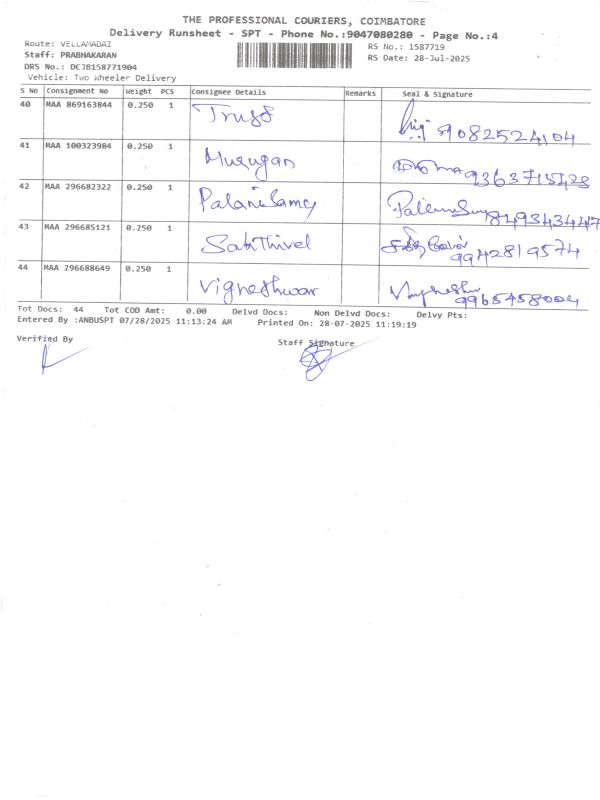 THE PROFESSIONAL COURIERS, COIMBATORE
Delivery Runsheet - SPT - Phone No.:9047080280 - Page No.:4
Route: VELLAMADAI RS No.: 1587719
Staff: PRABHAKARAN RS Date: 28-Jul-2025
DRS No.: DCJB158771904
Vehicle: Two Wheeler Delivery
S No Consignment No Weight PCS Consignee Details Remarks Seal & Signature
40 MAA 869163844 0.250 1 Trust 9082524104
41 MAA 100323984 0.250 1 Murugan 9363715428
42 MAA 296682322 0.250 1 Palanisamy
43 MAA 296685121 0.250 1 Sakthivel 9942819574
44 MAA 296688649 0.250 1 Vigneshwar 9965458004
Tot Docs: 44 Tot COD Amt: 0.00 Delvd Docs: Non Delvd Docs: Delvy Pts:
Entered By :ANBUSPT 07/28/2025 11:13:24 AM Printed On: 28-07-2025 11:19:19
Verified By Staff Signature